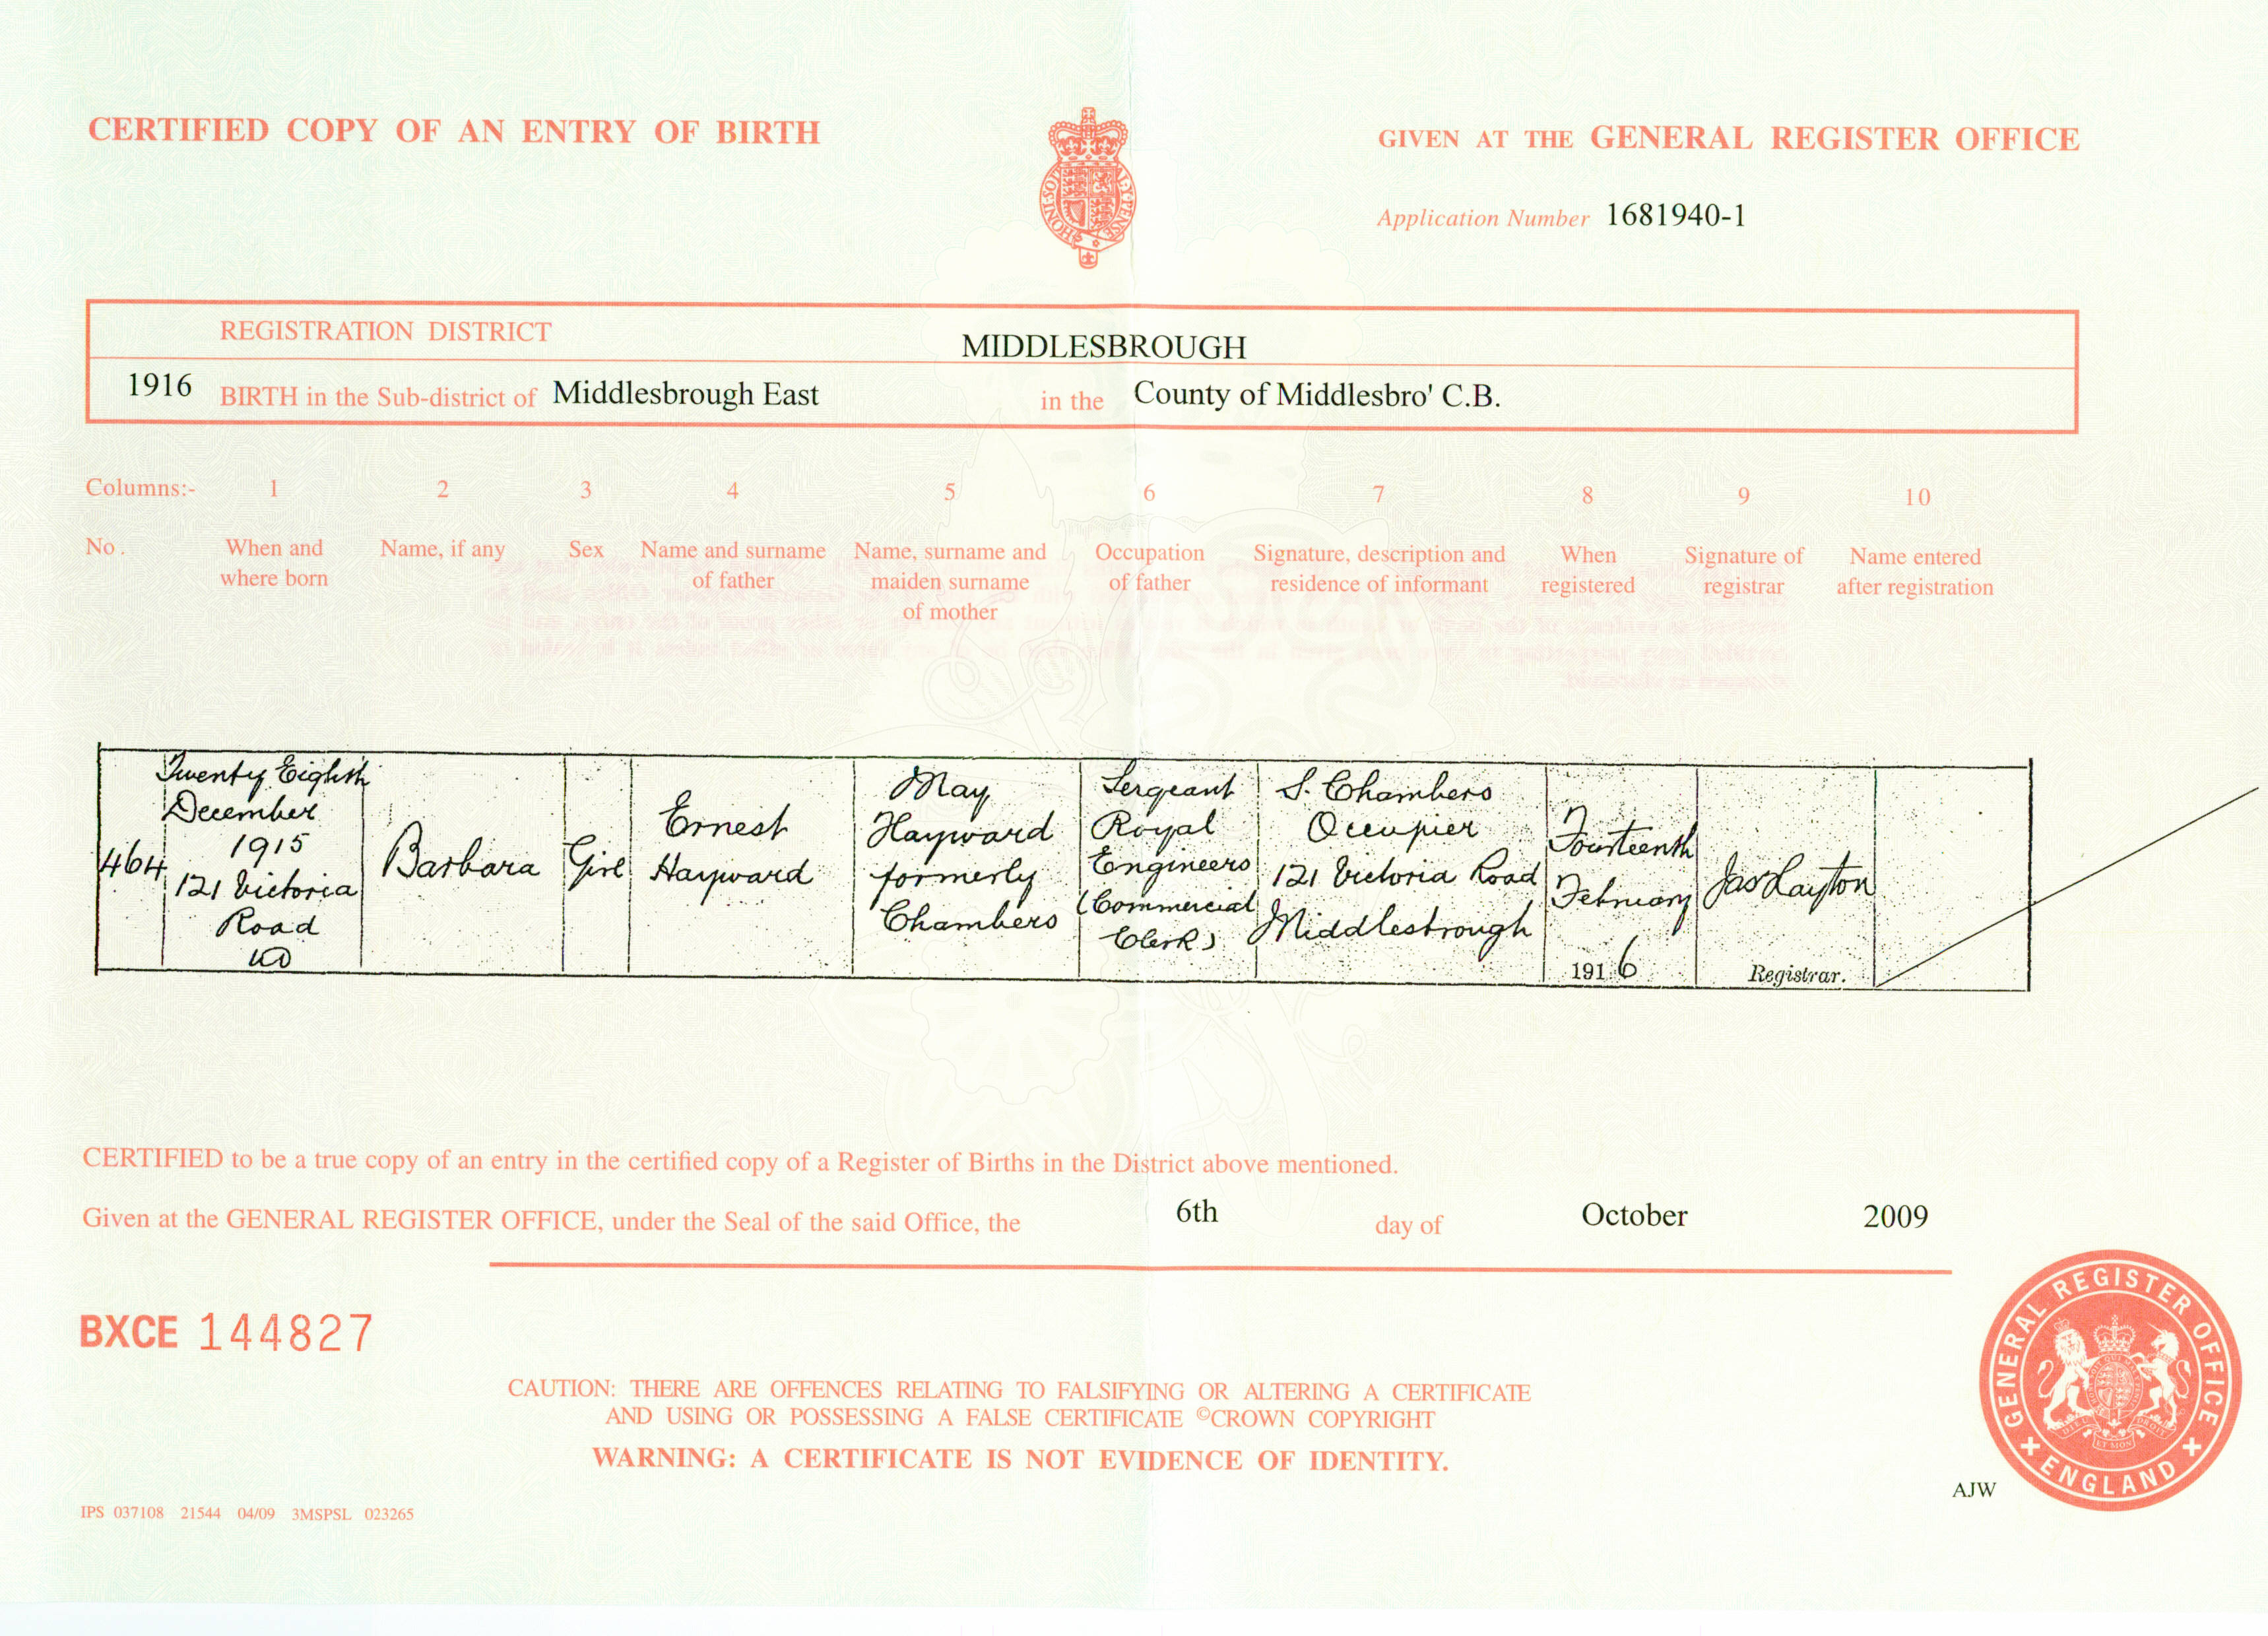 CERTIFIED COPY OF AN ENTRY OF BIRTH
GIVEN AT THE GENERAL REGISTER OFFICE
Application Number 1681940-1
REGISTRATION DISTRICT MIDDLESBROUGH
1916 BIRTH in the Sub-district of Middlesbrough East in the County of Middlesbro' C.B.
Columns:- 1 2 3 4 5 6 7 8 9 10
No. 
When and
where born
Name, if any
Sex
Name and surname
of father
Name, surname and
maiden surname
of mother
Occupation
of father
Signature, description and
residence of informant
When
registered
Signature of
registrar
Name entered
after registration
464
Twenty Eighth
December
1915
121 Victoria
Road
UD
Barbara
Girl
Ernest
Hayward
May
Hayward
formerly
Chambers
Sergeant
Royal
Engineers
(Commercial
Clerk)
S. Chambers
Occupier
121 Victoria Road
Middlesbrough
Fourteenth
February
1916
Jas Layton
Registrar.
CERTIFIED to be a true copy of an entry in the certified copy of a Register of Births in the District above mentioned.
Given at the GENERAL REGISTER OFFICE, under the Seal of the said Office, the 6th day of October 2009
BXCE 144827
CAUTION: THERE ARE OFFENCES RELATING TO FALSIFYING OR ALTERING A CERTIFICATE
AND USING OR POSSESSING A FALSE CERTIFICATE ©CROWN COPYRIGHT
WARNING: A CERTIFICATE IS NOT EVIDENCE OF IDENTITY.
GENERAL REGISTER OFFICE
ENGLAND
AJW
IPS 037108 21544 04/09 3MSPSL 023265